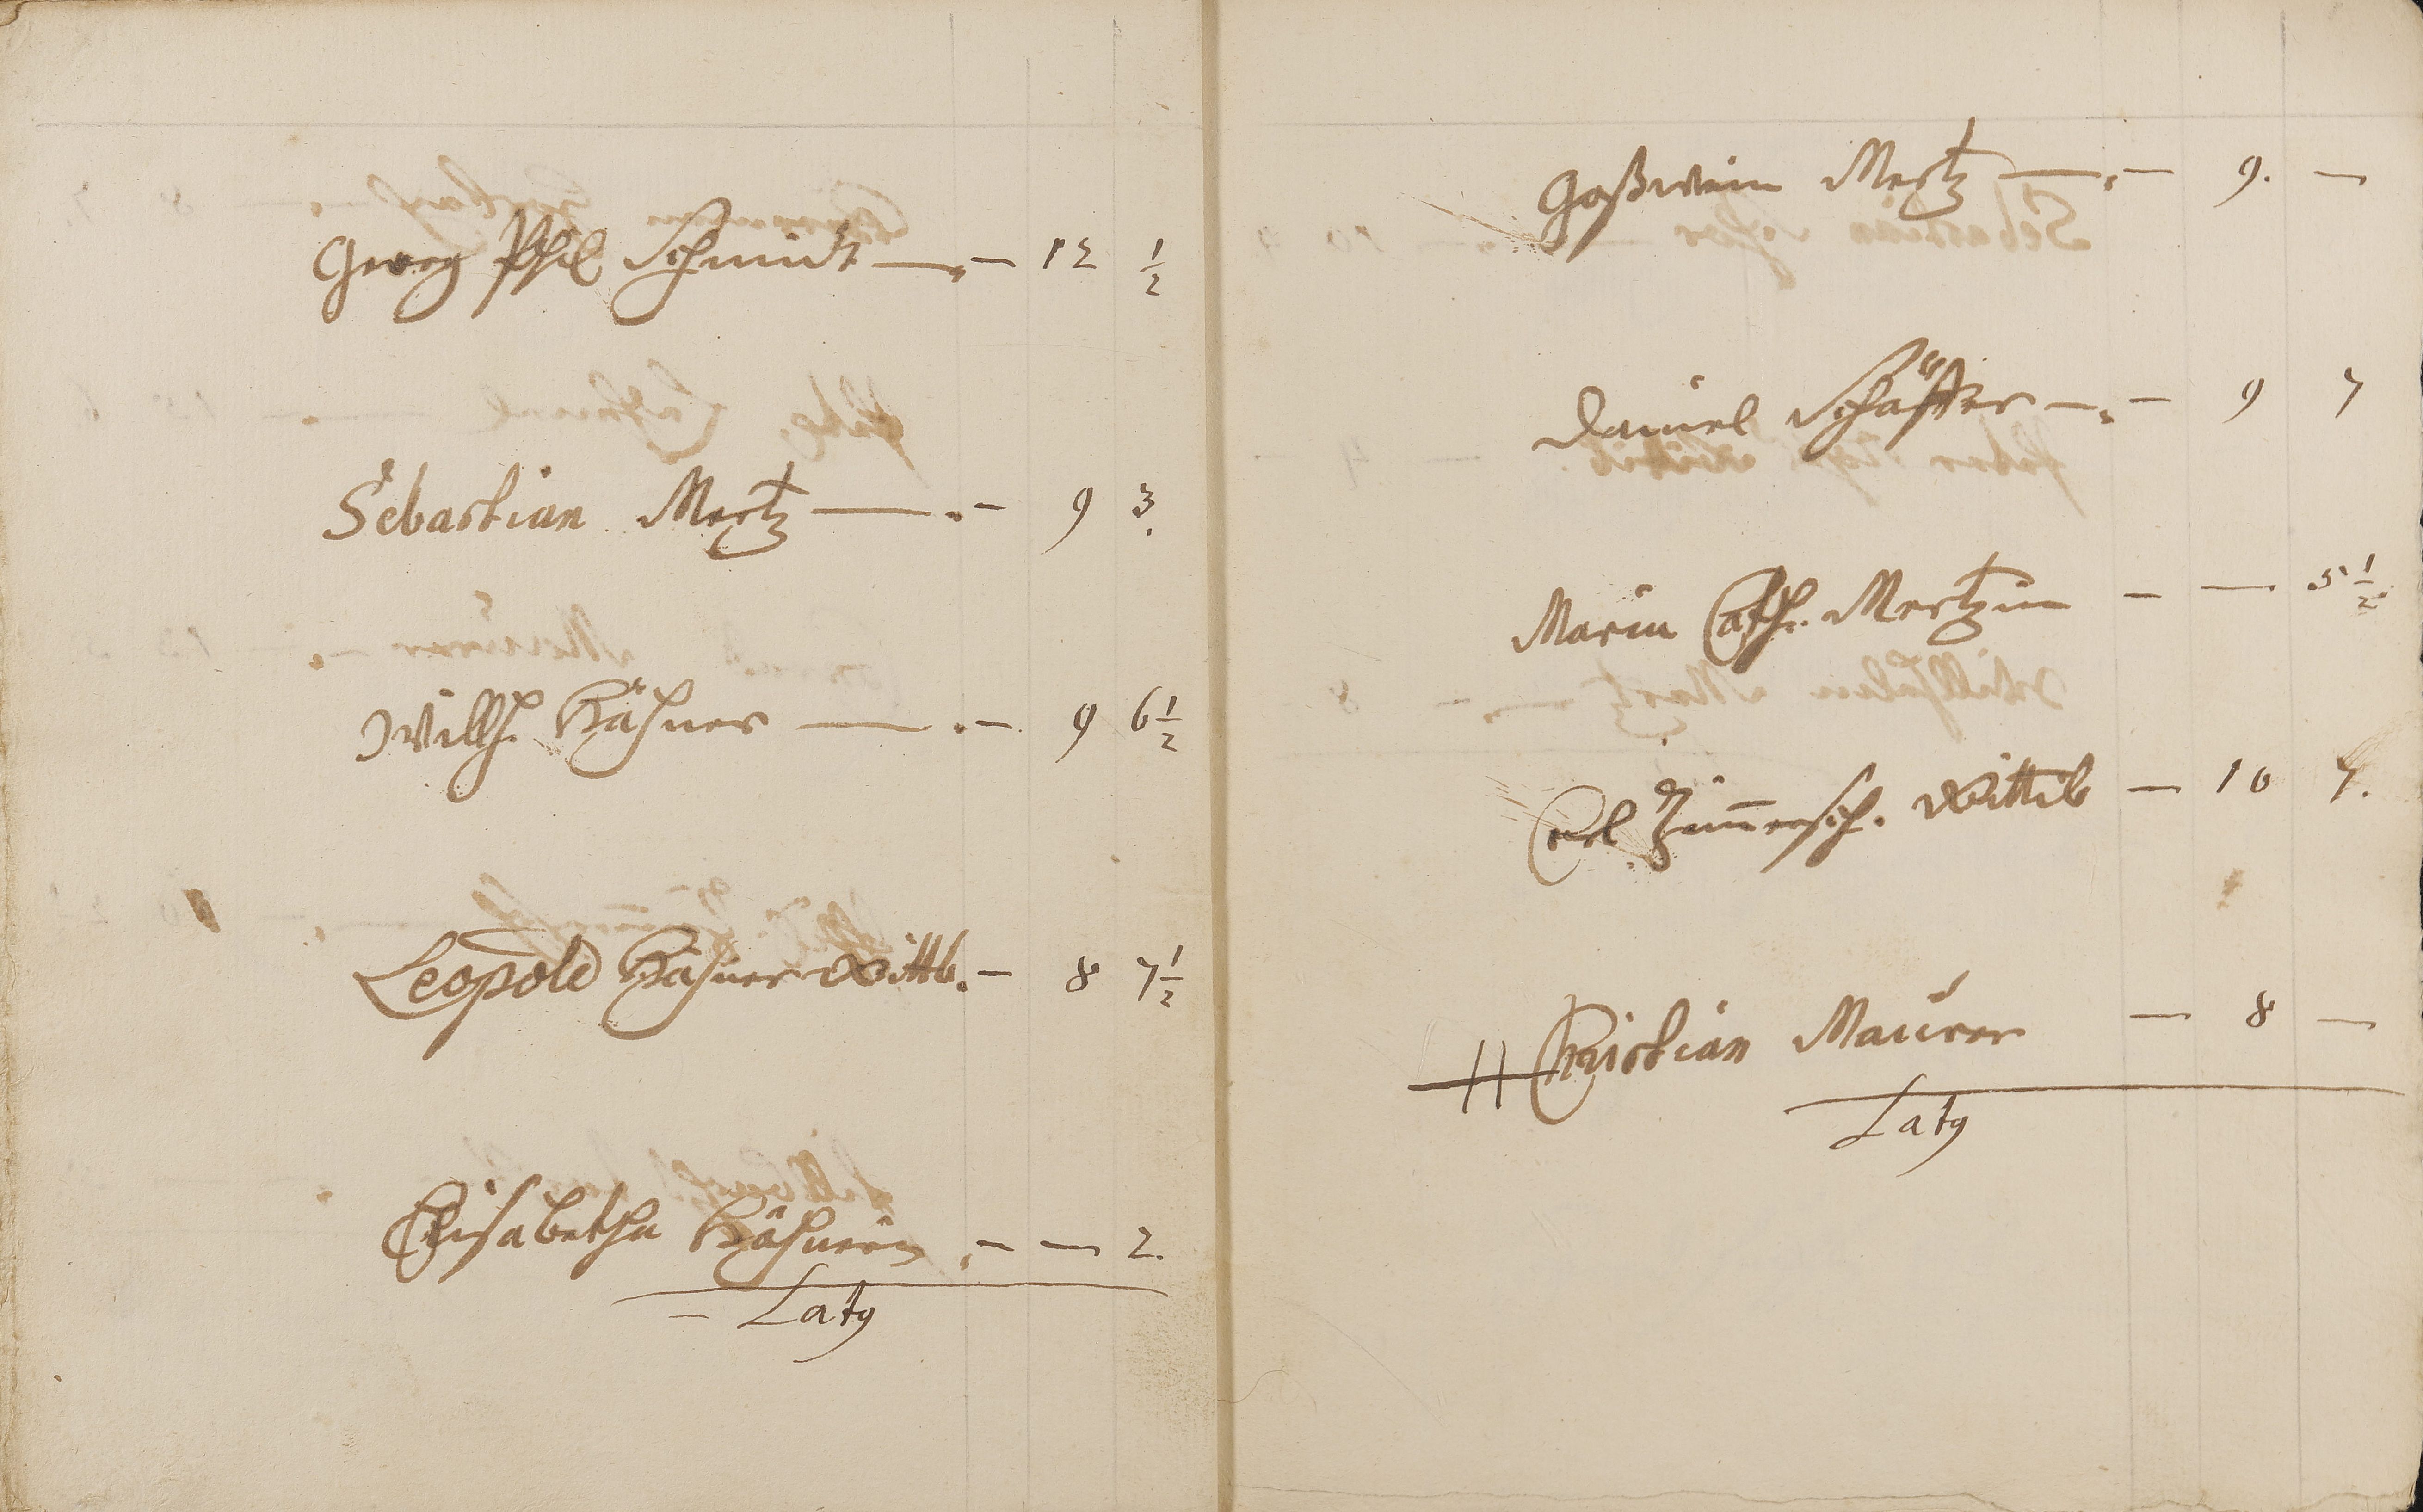 Georg Phil Schmidt — „ — 12 ½
Sebastian Mertz — „ — 9 3.
Willh. Häfner — „ — 9 6½
Leopold Häfner Wittb. — 8 7½
Elisabetha Häfnerin „ — — 2.
— Latg
Goßwein Mertz — „ — 9. —
Daniel Schäffer — „ — 9 7
Maria Cath. Mertzin — — 5½.
Carl Zim̅ersch. Wittib — 10 7.
Christian Maurer — 8 —
Latg